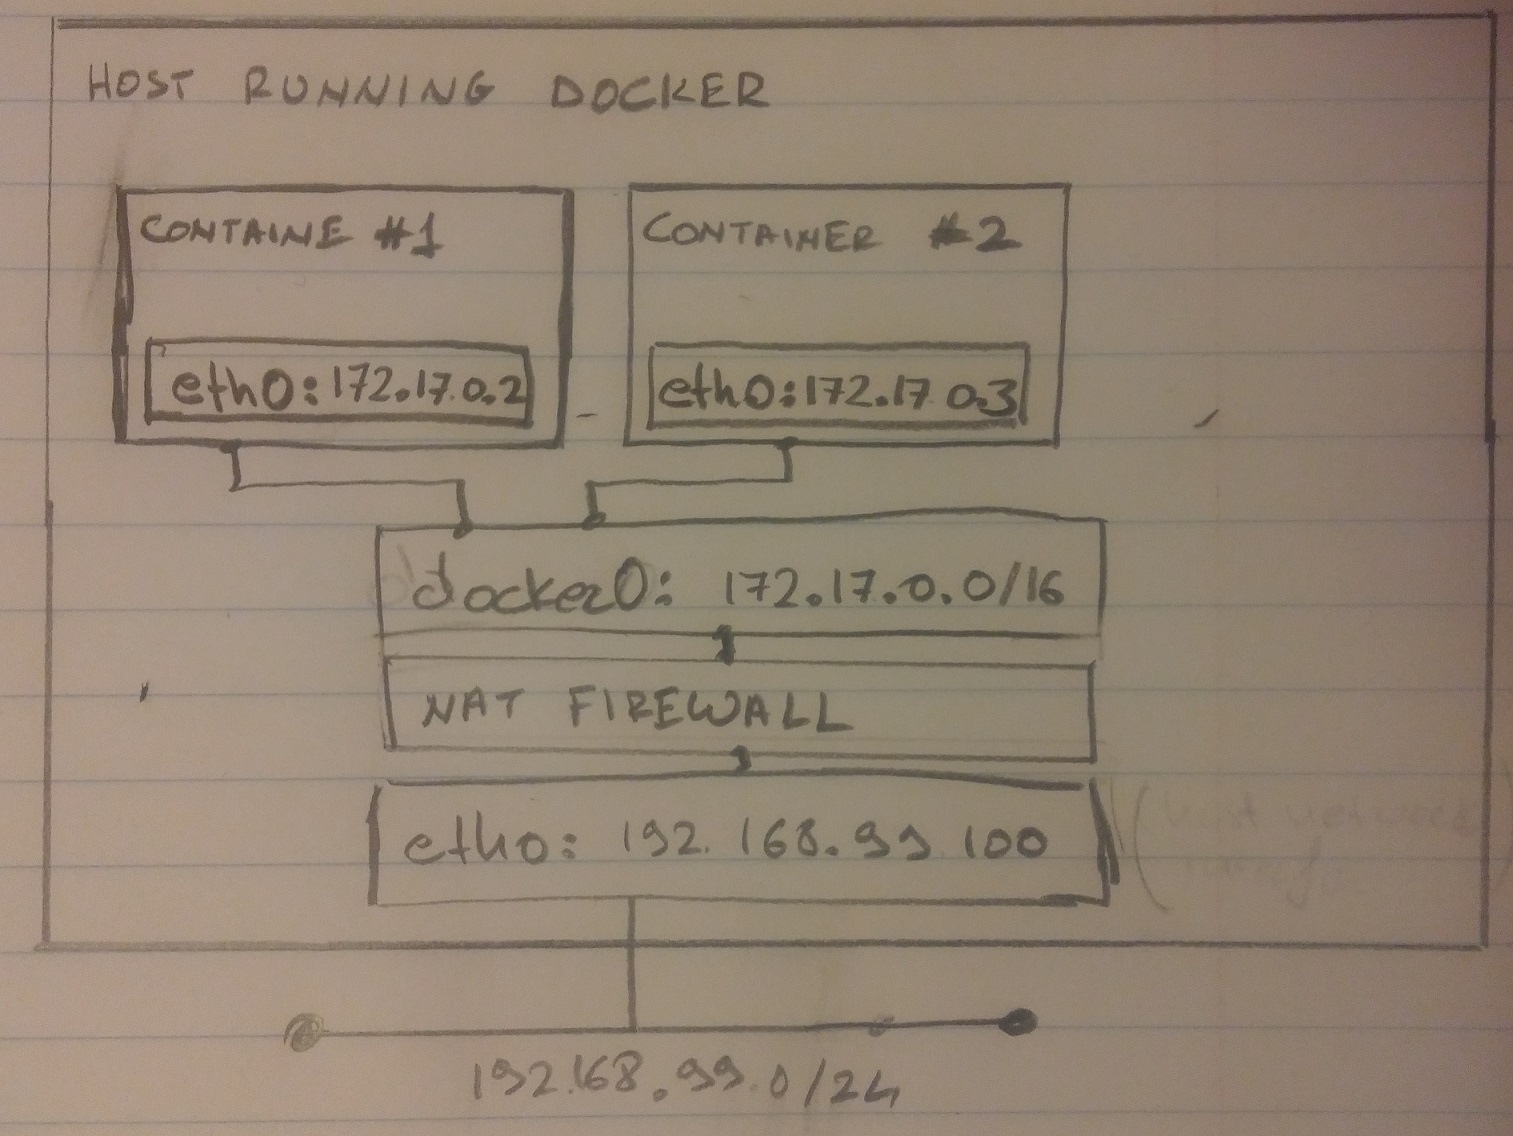 HOST RUNNING DOCKER
CONTAINE #1
CONTAINER #2
eth0: 172.17.0.2
eth0: 172.17 0.3
docker0: 172.17.0.0/16
NAT FIREWALL
eth0: 192.168.99.100
192.168.99.0/24